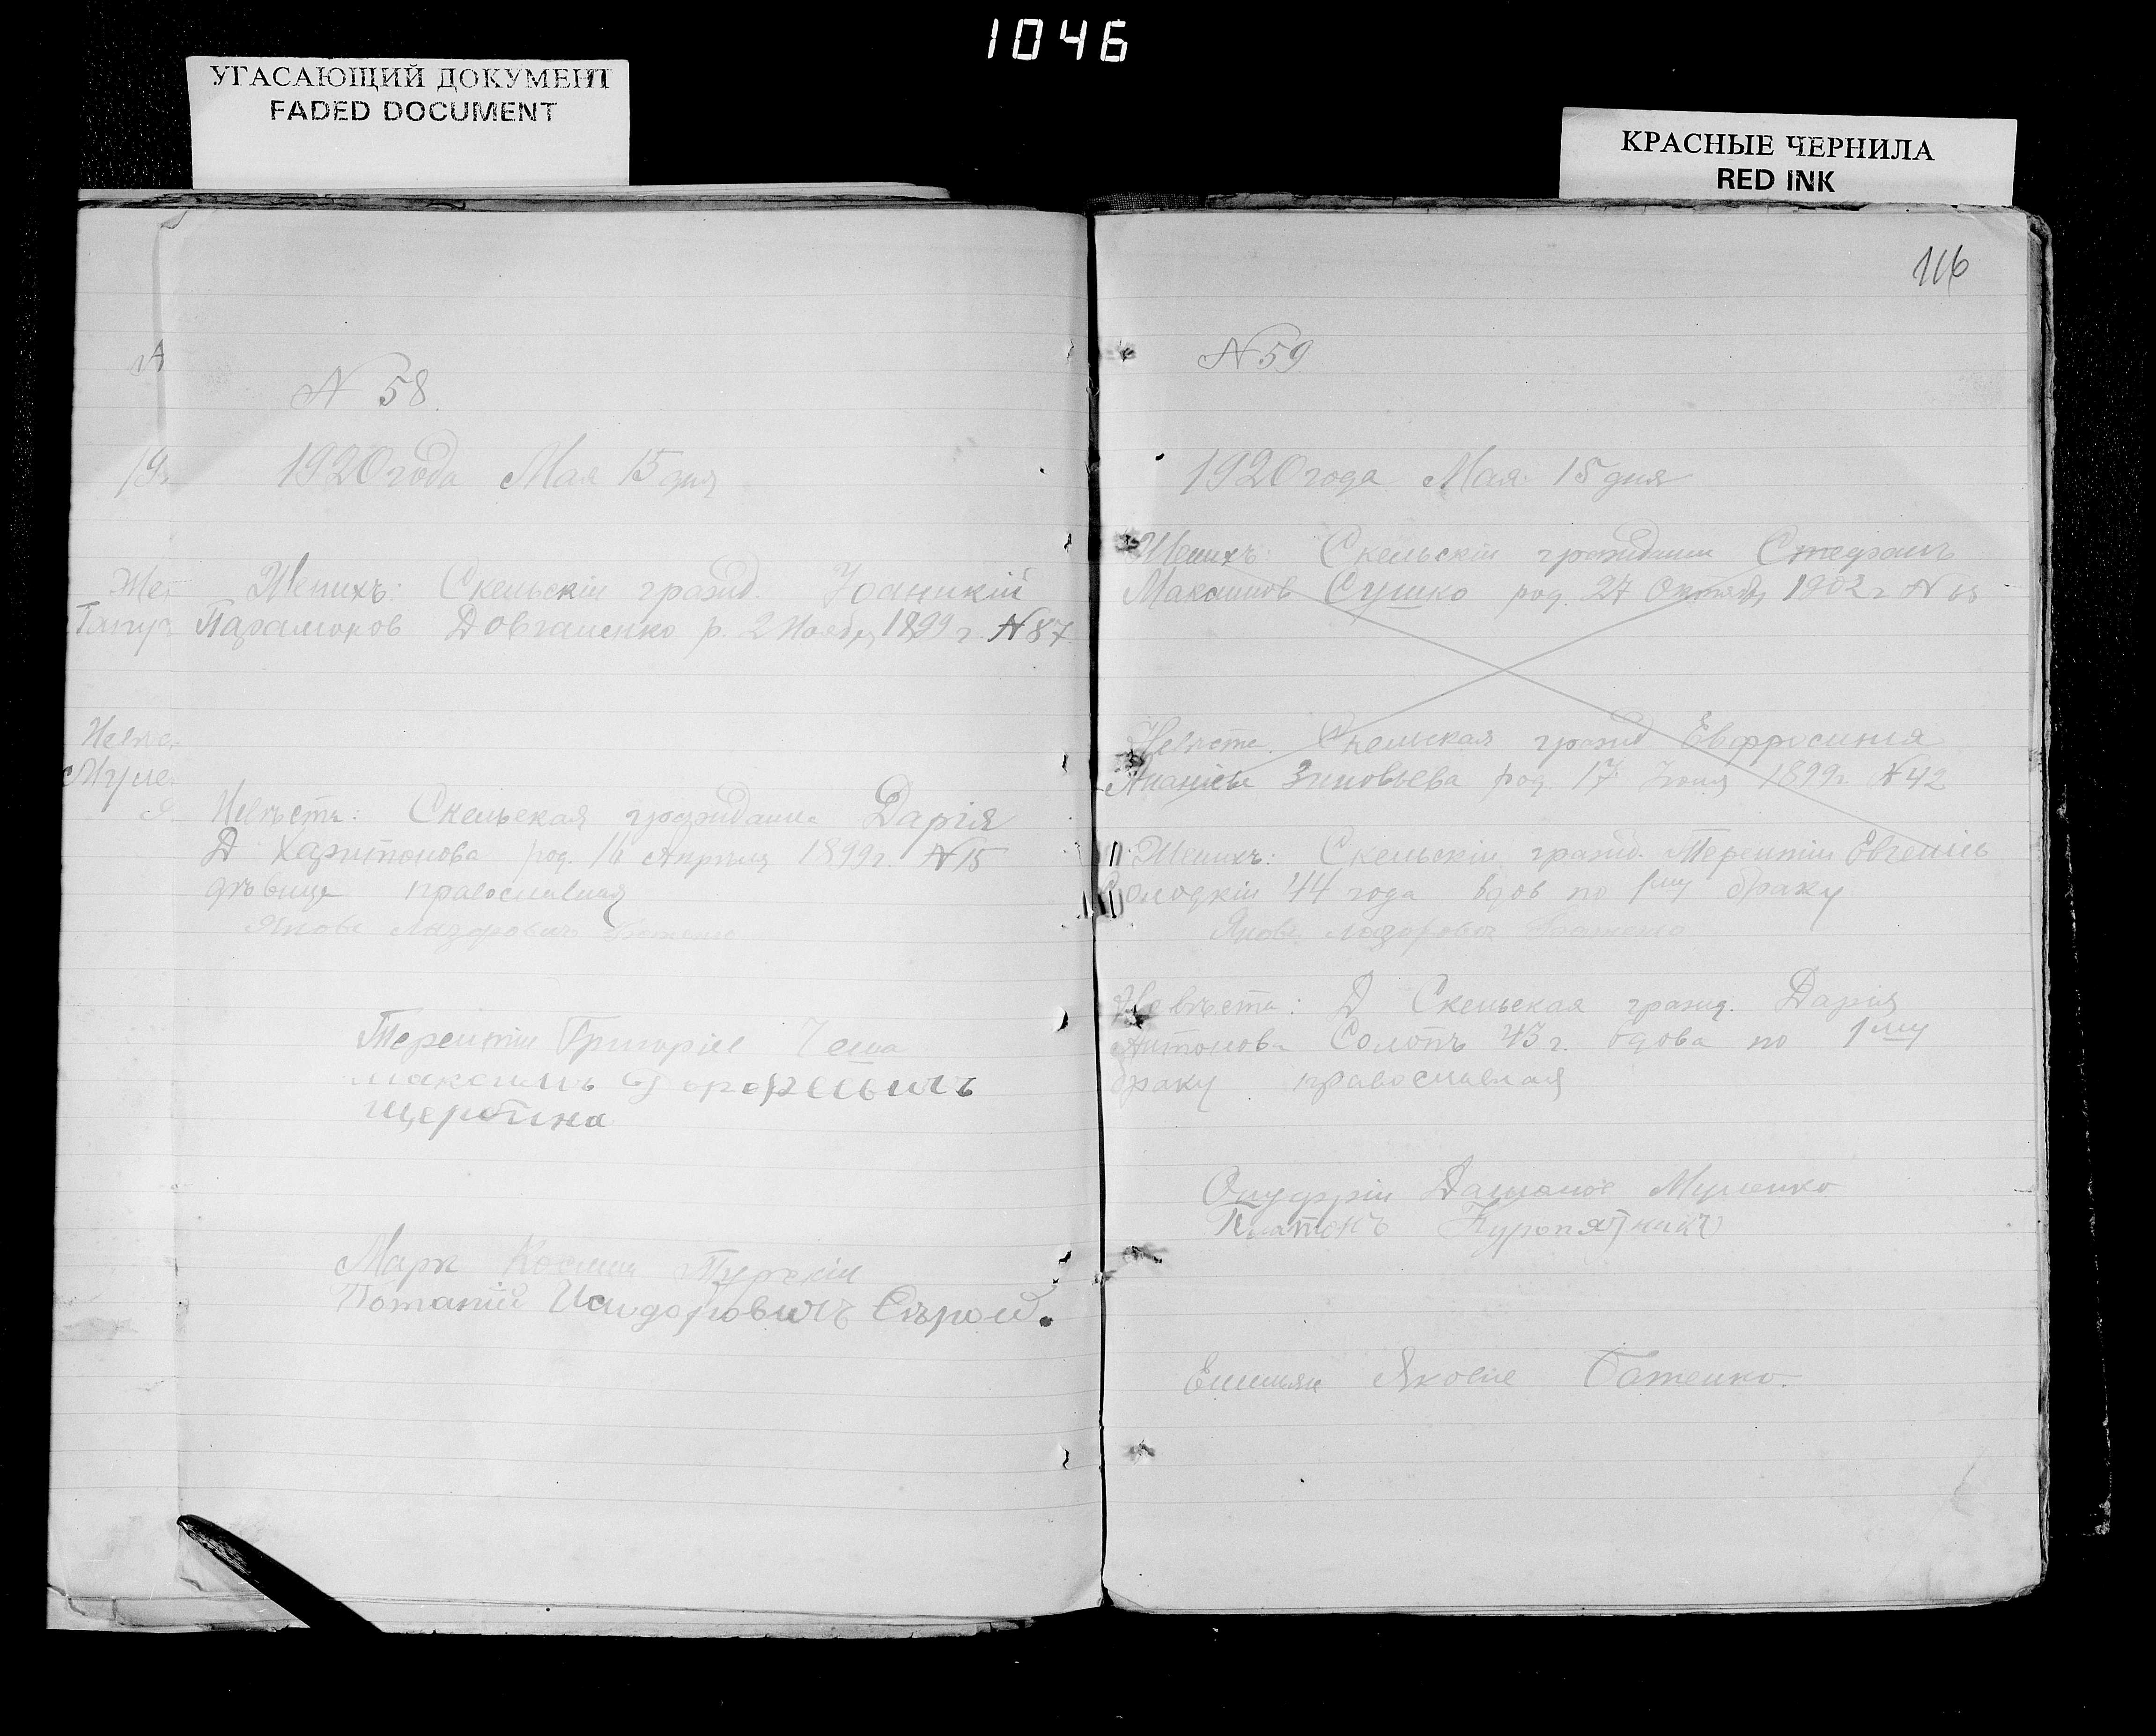 1046
УГАСАЮЩИЙ ДОКУМЕНТ
FADED DOCUMENT
N 58.
1920 года Мая 15 дня
Женихъ: Скельскій гражд. Іоанникій
Парамонов Довгаленко р. 2 Ноебр, 1899 г. N 87.
Невѣста: Скельская гражданка Дарія
Д Харитонова род. 16 Апрѣля 1899 г. N 15
дѣвица православная
Яковъ Лазаровичъ
Терентій Григоріев
Максимъ Дорофеевичъ
Щербина
Марк Космин Турскій
Потапій Исидоровичъ Сѣрой.
КРАСНЫЕ ЧЕРНИЛА
RED INK
116
N 59
1920 года Мая 15 дня
Женихъ: Скельскій гражданин Стефанъ
Максимов Сушко род. 27 Октября 1902 г N
Невѣста. Скельская гражд Евфросинія
Ананіева Зиновьева род. 17 Іюня 1899 г. N 42
Женихъ: Скельскій гражд. Терентій Евгеніев
44 года вдов по 1му браку
Яковъ Лазаровичъ
Невѣста: Д Скельская гражд. Дарія
Антонова Солопъ 43 г. вдова по 1му
браку православная
Онуфрій Даманов Муленко
Платонъ Куропятникъ
Емильян Яковлев Батенко.